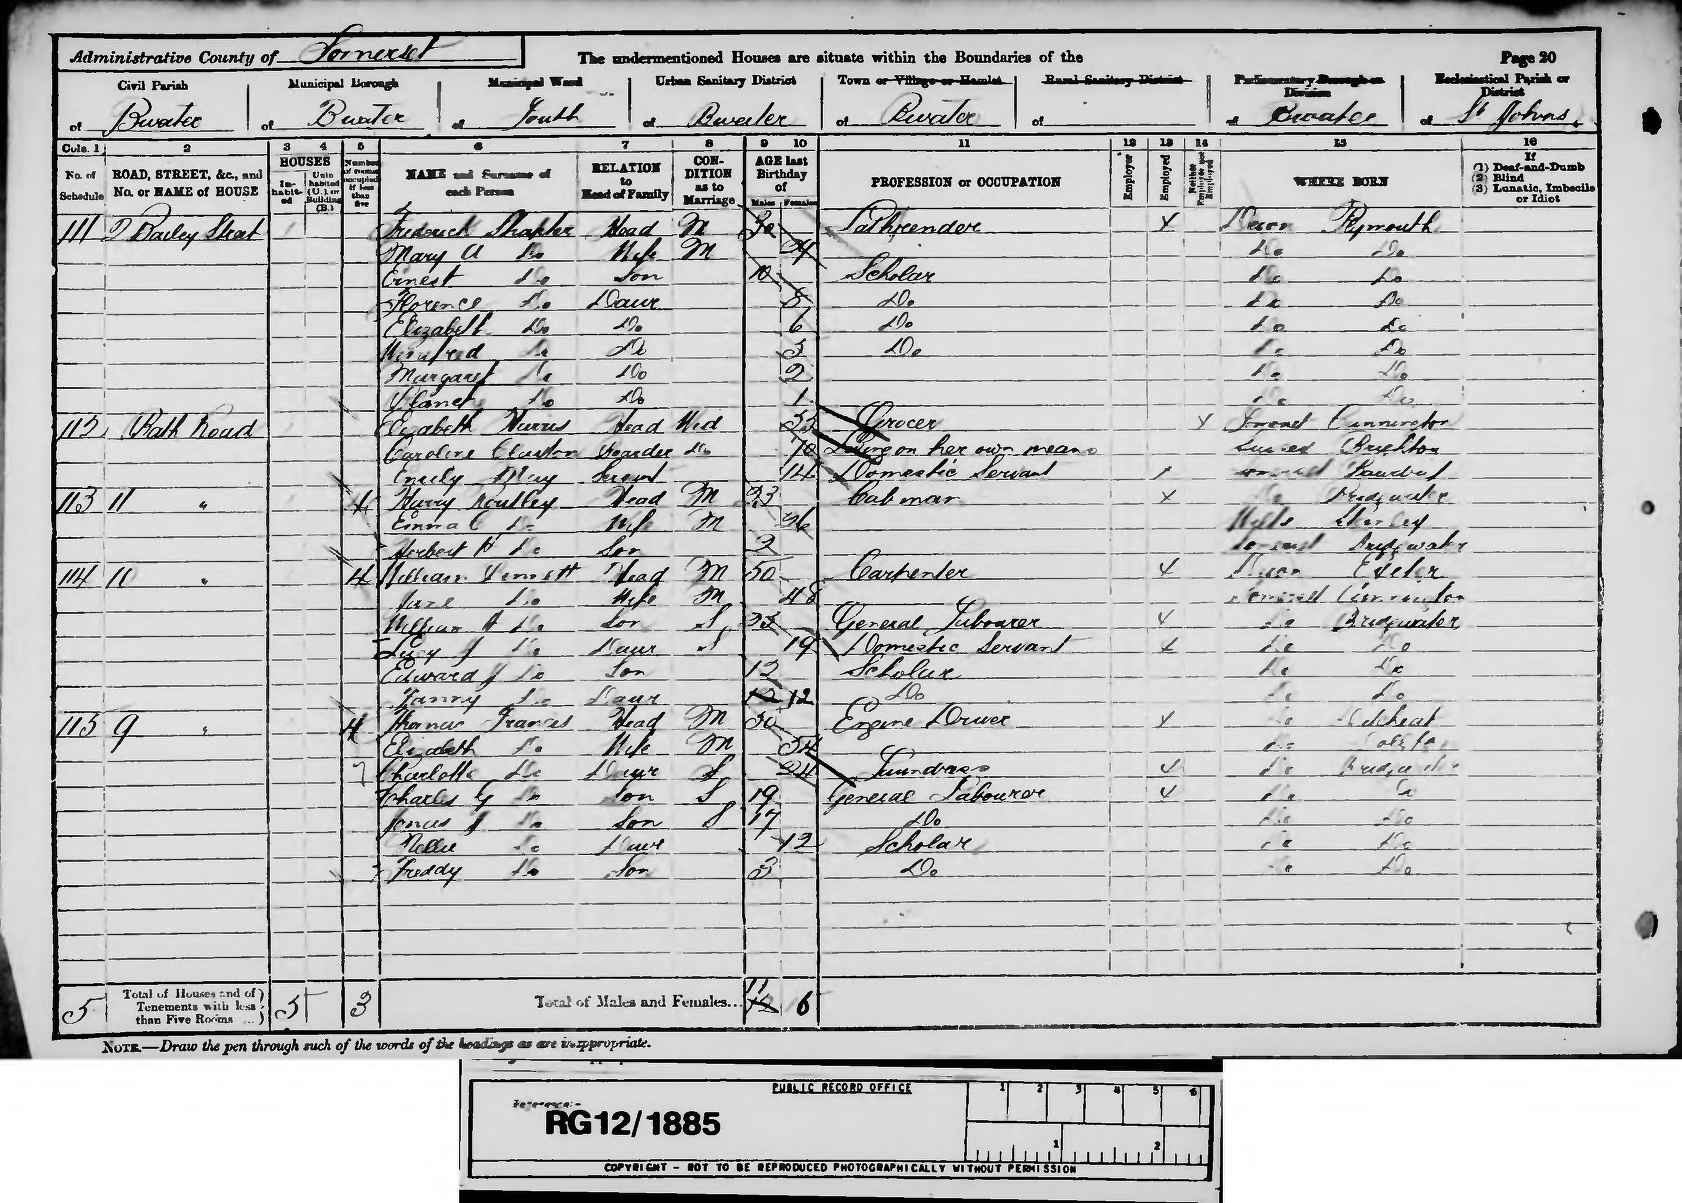 Administrative County of Somerset
The undermentioned Houses are situate within the Boundaries of the
Page 20
Civil Parish
of Bwater
Municipal Borough
of Bwater
Municipal Ward
of South
Urban Sanitary District
of Bwater
Town or Village or Hamlet
of Bwater
Rural Sanitary District
of
Parliamentary Borough or Division
of Bwater
Ecclesiastical Parish or District
of St Johns
Cols. 1 2 3 4 5 6 7 8 9 10 11 12 13 14 15 16
No. of Schedule
ROAD, STREET, &c., and No. or NAME of HOUSE
HOUSES
Inhabited
Uninhabited (U.) or Building (B.)
Number of rooms occupied if less than five
NAME and Surname of each Person
RELATION to Head of Family
CONDITION as to Marriage
AGE last Birthday of
Males Females
PROFESSION or OCCUPATION
Employer
Employed
Neither Employer nor Employed
WHERE BORN
If
(1) Deaf-and-Dumb
(2) Blind
(3) Lunatic, Imbecile or Idiot
111 2 Bailey Street Frederick Shapter Head M 30 X Devon Plymouth
Mary A Do Wife M Do Do
Ernest Do Son 10 Scholar Do Do
Florence Do Daur 8 Do Do Do
Elizabeth Do Do 6 Do Do Do
Do Do 3 Do Do Do
Margaret Do Do 2 Do Do
Do Do 1 Do Do
112 Bath Road Elizabeth Harris Head Wid Grocer X Somerset Cannington
Caroline Boarder Do 70 Living on her own means Sussex Brighton
Emily May Servant 14 Domestic Servant Somerset
113 11 " 4 Harry Head M 23 Cabman X Do Bridgwater
Emma Do Wife M 26 Wilts
Herbert H Do Son 2 Somerset Bridgwater
114 10 " 4 William Head M 50 Carpenter X Devon Exeter
Jane Do Wife M 48 Somerset Cannington
William H Do Son S 23 General Labourer X Do Bridgwater
Lucy J Do Daur S 19 Domestic Servant X Do Do
Edward J Do Son 12 Scholar Do Do
Fanny Do Daur 12 12 Do Do Do
115 9 " 4 Thomas Frances Head M 50 Engine Driver X Do
Elizabeth Do Wife M 54 Do
Charlotte Do Daur S 24 Laundress X Do Bridgwater
Charles G Do Son S 19 General Labourer X Do Do
James J Do Son S 17 Do Do Do
Nellie Do Daur 12 Scholar Do Do
Freddy Do Son 3 Do Do Do
5 Total of Houses and of Tenements with less than Five Rooms 5 3 Total of Males and Females... 11 12 6
NOTE.—Draw the pen through such of the words of the headings as are inappropriate.
PUBLIC RECORD OFFICE
1 2 3 4 5 6
Reference:-
RG12/1885
1 2
COPYRIGHT - NOT TO BE REPRODUCED PHOTOGRAPHICALLY WITHOUT PERMISSION